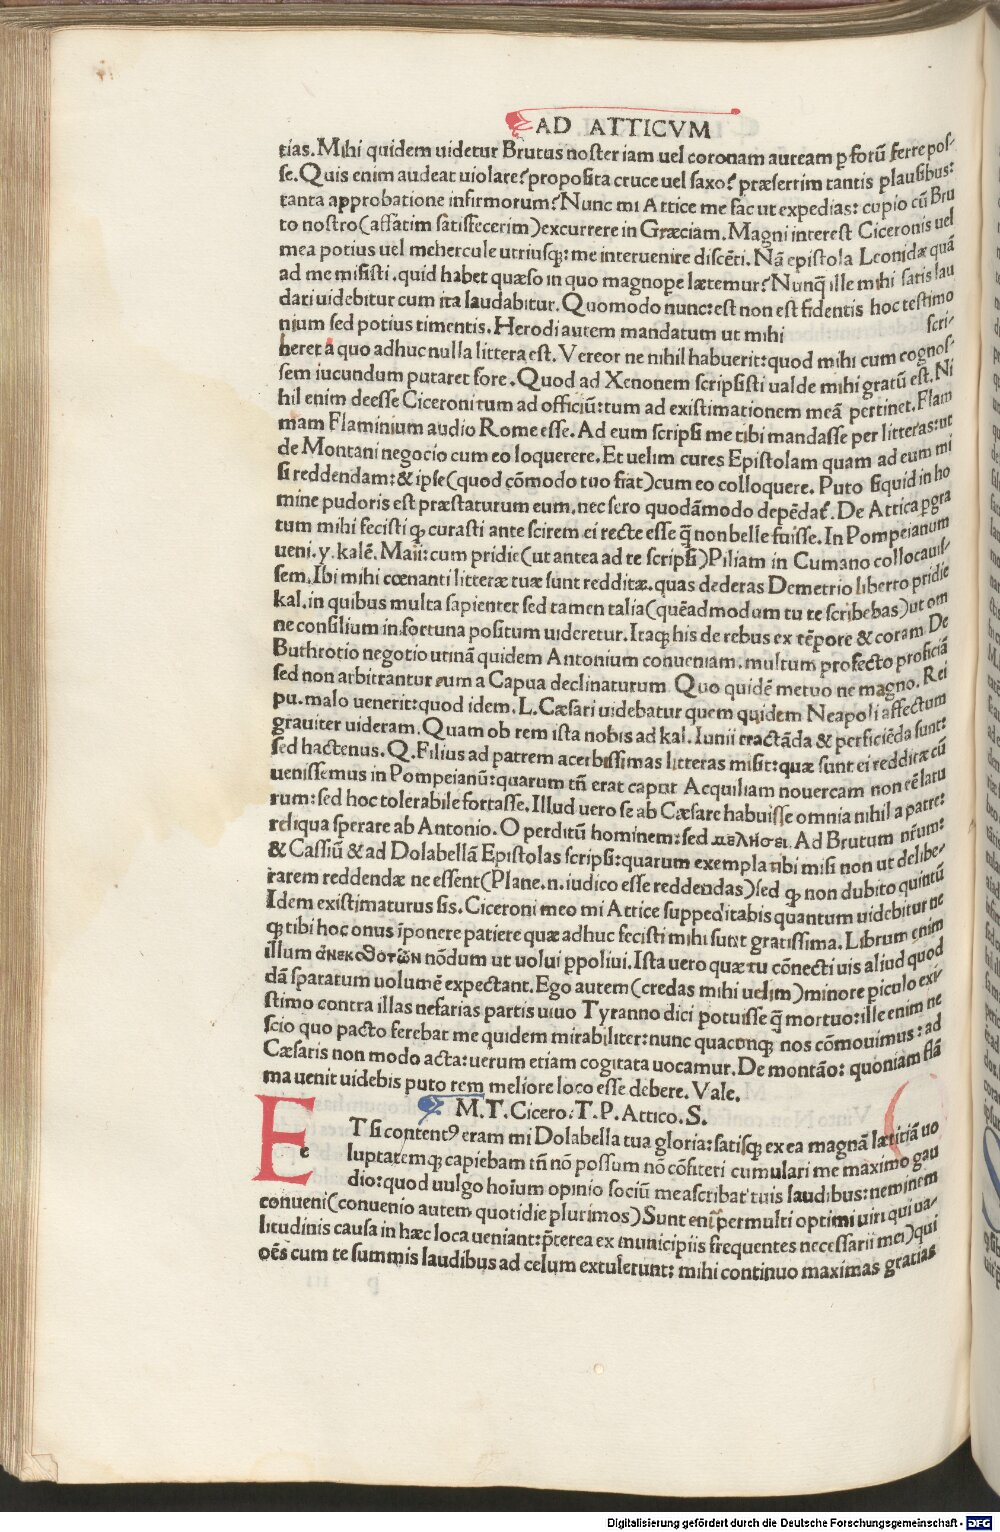 AD ATTICVM
tias. Mihi quidem uidetur Brutus noster iam uel coronam auream ꝑ forū ferre pos-
se. Quis enim audeat uiolare? proposita cruce uel saxo? præsertim tantis plausibus:
tanta approbatione infirmorum? Nunc mi Attice me fac ut expedias: cupio cū Bru
to nostro (affatim satisfecerim) excurrere in Græciam. Magni interest Ciceronis uel
mea potius uel mehercule utriusqꝫ: me interuenire discēti. Nā epistola Leonidæ quā
ad me misisti. quid habet quæso in quo magnope lætemur? Nunq̄ ille mihi satis lau
dari uidebitur cum ita laudabitur. Quomodo nunc: est non est fidentis hoc testimo
nium sed potius timentis. Herodi autem mandatum ut mihi scri-
beret a quo adhuc nulla littera est. Vereor ne nihil habuerit: quod mihi cum cognos-
sem iucundum putaret fore. Quod ad Xenonem scripsisti ualde mihi gratū est. Ni
hil enim deesse Ciceroni tum ad officiū: tum ad existimationem meā pertinet. Flam
mam Flaminium audio Rome esse. Ad eum scripsi me tibi mandasse per litteras: ut
de Montani negocio cum eo loquerere. Et uelim cures Epistolam quam ad eum mi
si reddendam: & ipse (quod cōmodo tuo fiat) cum eo colloquere. Puto siquid in ho
mine pudoris est præstaturum eum. nec sero quodāmodo depēdat. De Attica ꝑgra
tum mihi fecisti qꝫ curasti ante scirem ei recte esse q̄ non belle fuisse. In Pompeianum
ueni. y. kalē. Maii: cum pridie (ut antea ad te scripsi) Piliam in Cumano collocauis-
sem. Ibi mihi cœnanti litteræ tuæ sunt redditæ. quas dederas Demetrio liberto pridie
kal. in quibus multa sapienter sed tamen talia (quēadmodum tu te scribebas) ut om
ne consilium in fortuna positum uideretur. Itaqꝫ his de rebus ex tēpore & coram. De
Buthrotio negotio utinā quidem Antonium conueniam. multum profecto proficiā
sed non arbitrantur eum a Capua declinaturum Quo quidē metuo ne magno. Rei
pu. malo uenerit: quod idem. L. Cæsari uidebatur quem quidem Neapoli affectum
grauiter uideram. Quam ob rem ista nobis ad kal. Iunii tractāda & perficiēda sunt:
sed hactenus. Q. Filius ad patrem acerbissimas litteras misit: quæ sunt ei redditæ cū
uenissemus in Pompeianū: quarum tn̄ erat caput Acquiliam nouercam non eē latu
rum: sed hoc tolerabile fortasse. Illud uero se ab Cæsare habuisse omnia nihil a patre:
reliqua sperare ab Antonio. O perditū hominem: sed μελήσει. Ad Brutum nr̄um:
& Cassiū & ad Dolabellā Epistolas scripsi: quarum exempla tibi misi non ut delibe-
rarem reddendæ ne essent (Plane. n. iudico esse reddendas) sed qꝫ non dubito quintū
Idem existimaturus sis. Ciceroni meo mi Attice suppeditabis quantum uidebitur ne
qꝫ tibi hoc onus īponere patiere quæ adhuc fecisti mihi sunt gratissima. Librum enim
illum ἀνεκδότων nōdum ut uolui ꝑpoliui. Ista uero quæ tu cōnecti uis aliud quod
dā sparatum uolumē expectant. Ego autem (credas mihi uelim) minore piculo exi-
stimo contra illas nefarias partis uiuo Tyranno dici potuisse q̄ mortuo: ille enim ne
scio quo pacto ferebat me quidem mirabiliter: nunc quacunqꝫ nos cōmouimus: ad
Cæsaris non modo acta: uerum etiam cogitata uocamur. De montāo: quoniam flā
ma uenit uidebis puto rem meliore loco esse debere. Vale.
M. T. Cicero. T. P. Attico. S.
E
e T si contentꝰ eram mi Dolabella tua gloria: satisqꝫ ex ea magnā lætitiā uo
luptatemqꝫ capiebam tn̄ nō possum nō cōfiteri cumulari me maximo gau
dio: quod uulgo hoīum opinio sociū me ascribat tuis laudibus: neminem
conueni (conuenio autem quotidie plurimos) Sunt enī permulti optimi uiri qui ua-
litudinis causa in hæc loca ueniant: p̄terea ex municipiis frequentes necessarii mei) qui
oēs cum te summis laudibus ad celum extulerunt: mihi continuo maximas gratias
Digitalisierung gefördert durch die Deutsche Forschungsgemeinschaft - DFG